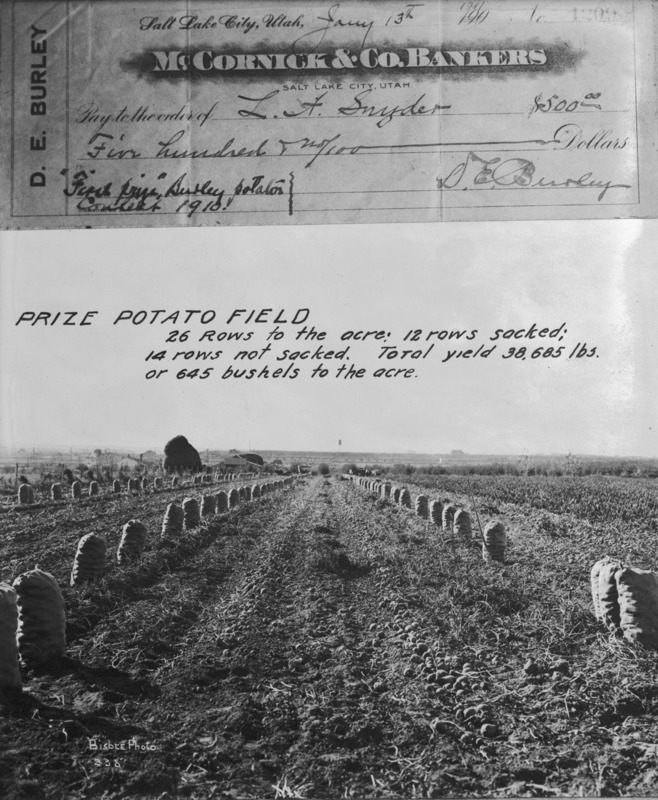 Salt Lake City, Utah, Jany 13th
McCornick & Co. Bankers
SALT LAKE CITY, UTAH
Pay to the order of L. A. Snyder $500 00
Five hundred & no/100 Dollars
"First prize" Burley potato
Contest 1910!
D. E. Burley
D. E. BURLEY
PRIZE POTATO FIELD
26 Rows to the acre; 12 rows sacked;
14 rows not sacked. Total yield 38,685 lbs.
or 645 bushels to the acre.
Bisbee Photo
338